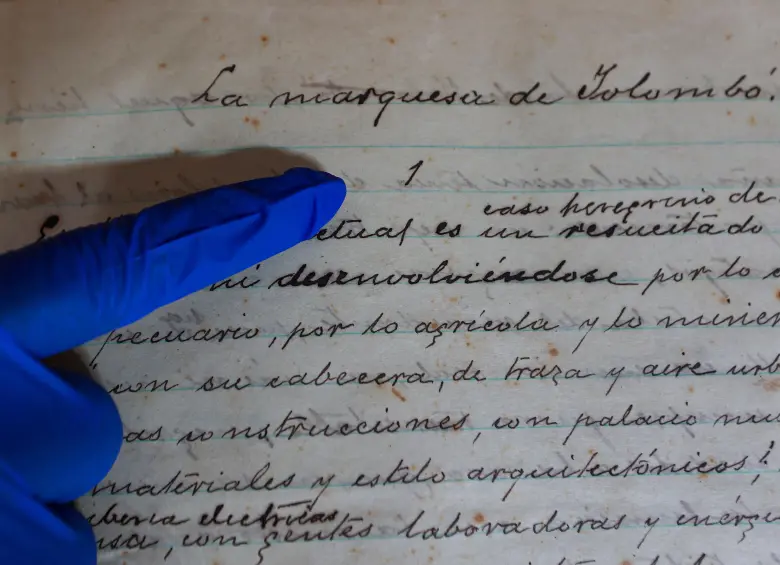 La marquesa de Yolombó.
1
caso peregrino de
ctual es un resucitado
ni desenvolviéndose por lo
pecuario, por lo agrícola y lo miner
con su cabecera, de traza y aire urb
as construcciones, con palacio mu
materiales y estilo arquitectónicos;
iberia electricas
usa, con gentes laboradoras y enérg